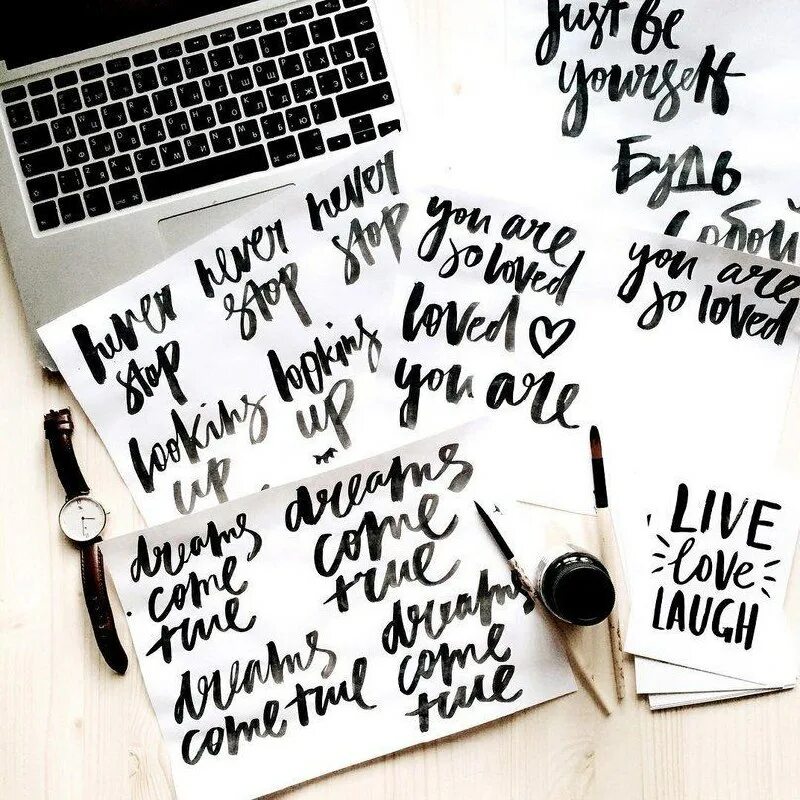 Just be
yourself
Будь
собой
never
stop
never
stop
never
stop
looking
up
looking
up
you are
so loved
loved ♡
you are
you are
so loved
dreams
come
true
dreams
come
true
dreams
come true
dreams
come
true
LIVE
love
LAUGH